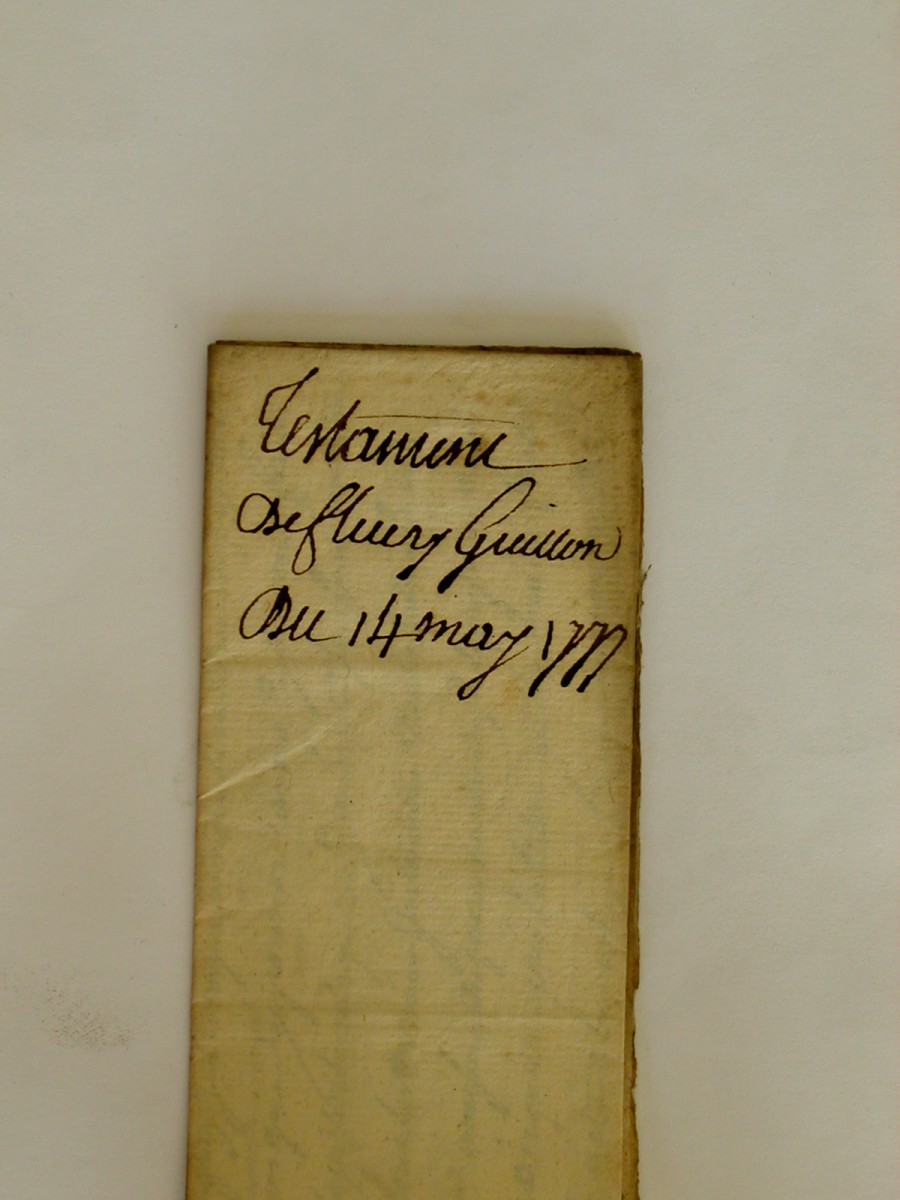 Testament
De fleury Guillon
Du 14 may 1777